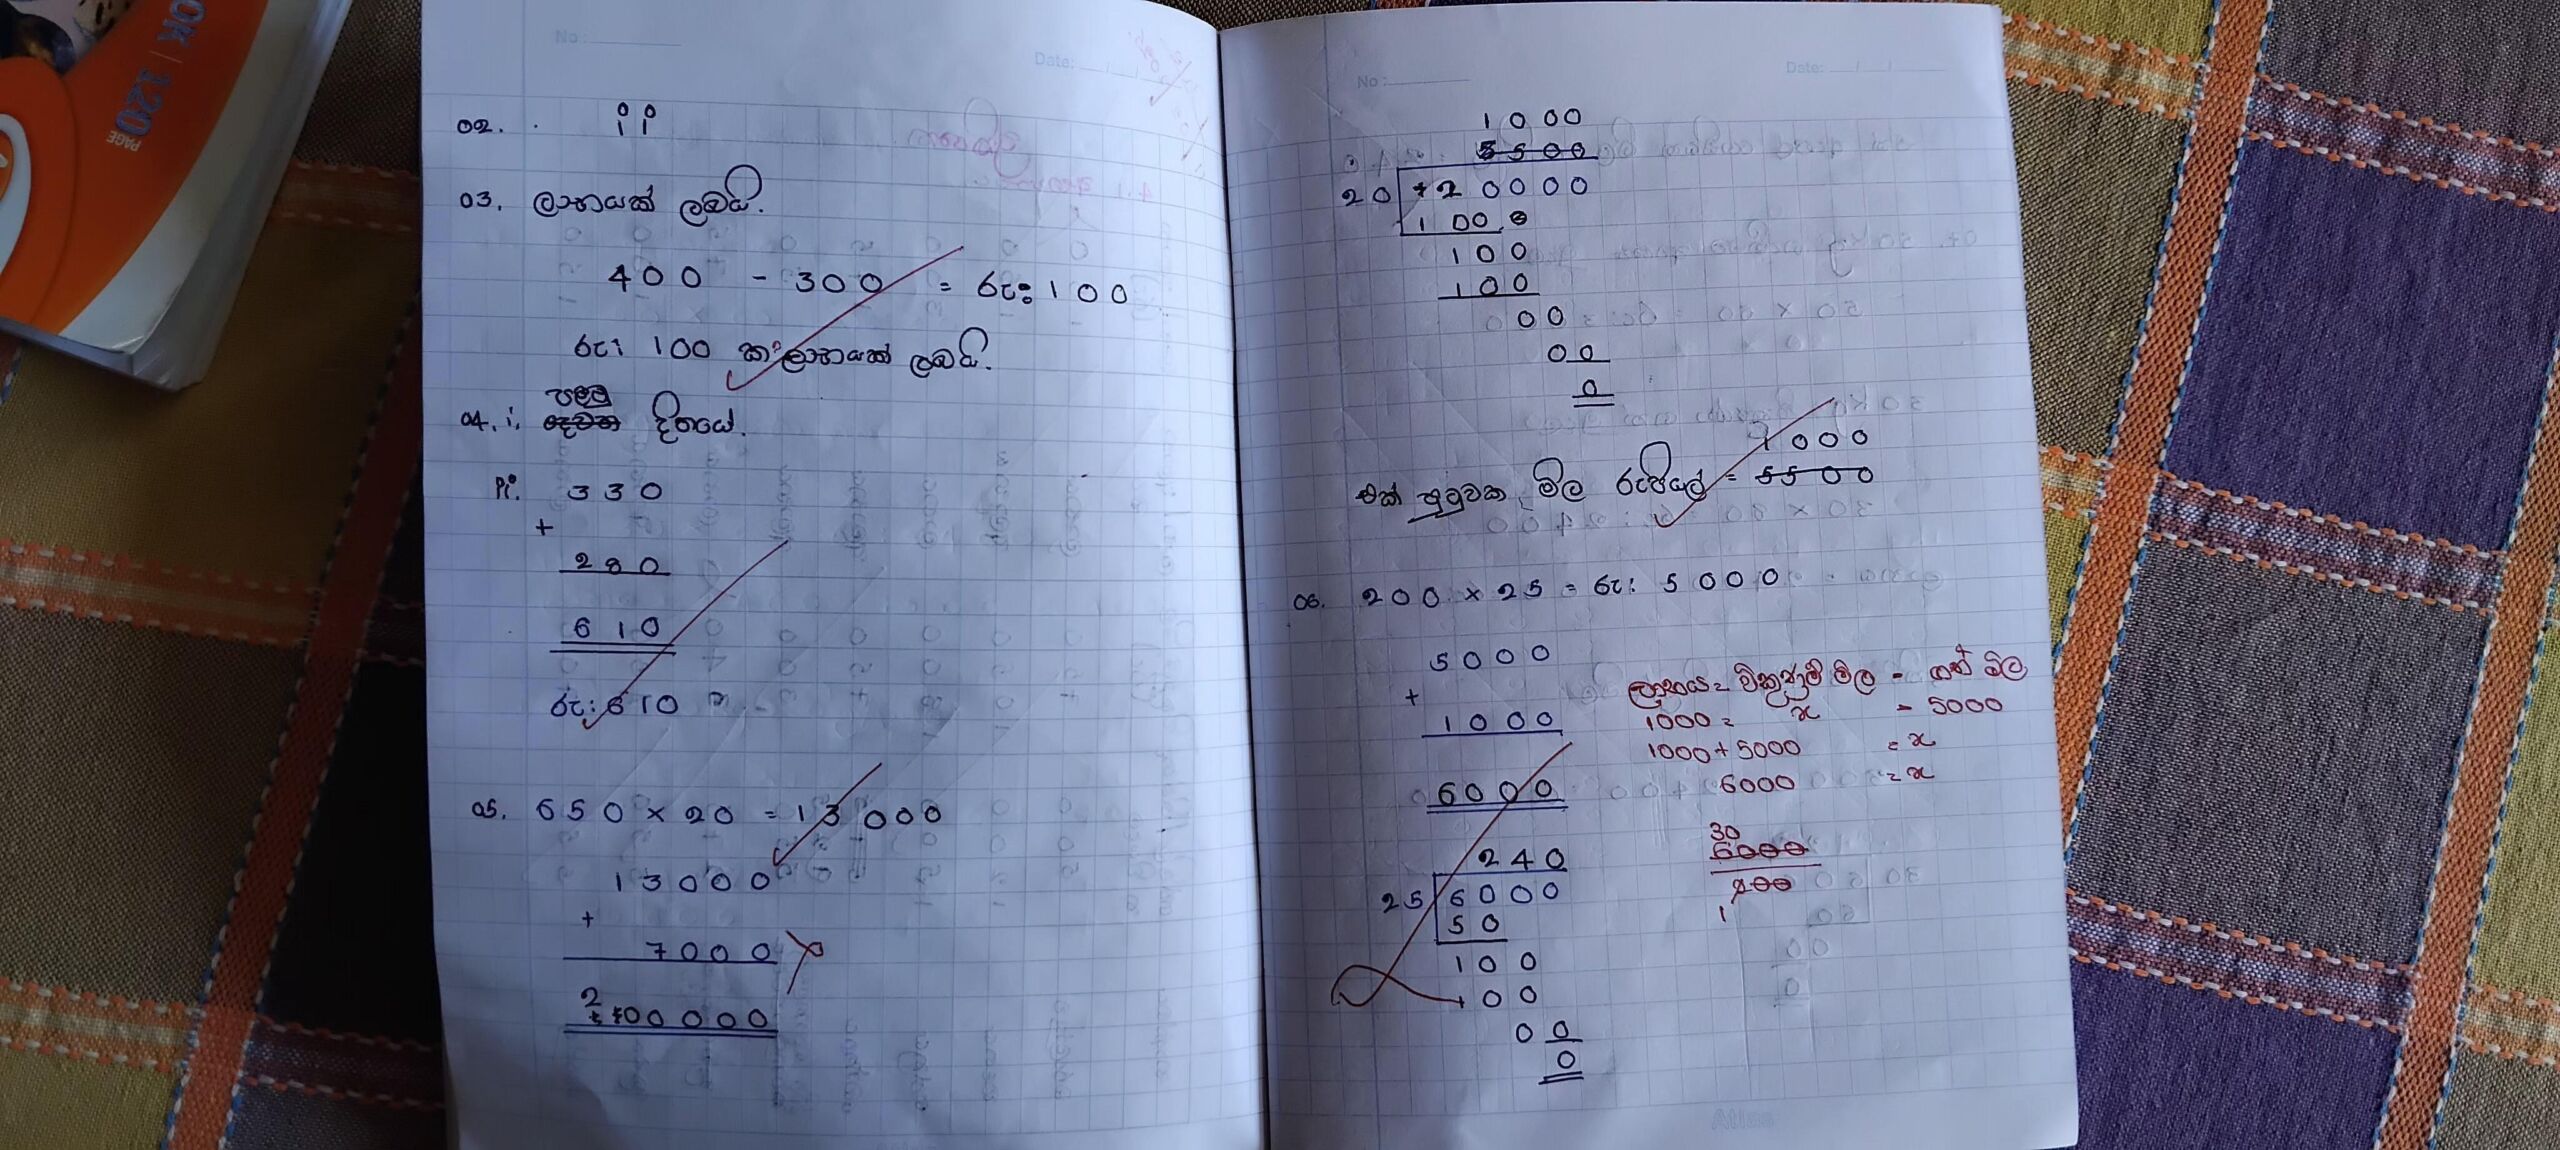 OK | 120
PAGE
No :
Date: / /
02. ii
03. ලාභයක් ලබයි.
400 - 300 = රු: 100
රු: 100 ක ලාභයක් ලබයි.
පළමු
04. i, දෙවන දිනයේ.
ii. 330
+
280
610
රු: 610
05. 650 × 20 = 13000
13000
+
7000
2
00000
No :
Date: / /
1000
5500
20 20000
1000
100
100
00
00
0
1000
එක් පුටුවක මිල රුපියල් = 5500
06. 200 × 25 = රු: 5000
5000
+
1000
6000
240
25 6000
50
100
100
00
0
ලාභය = විකුණුම් මිල - ගත් මිල
1000 = x - 5000
1000 + 5000 = x
6000 = x
30
6000
200
1
Atlas